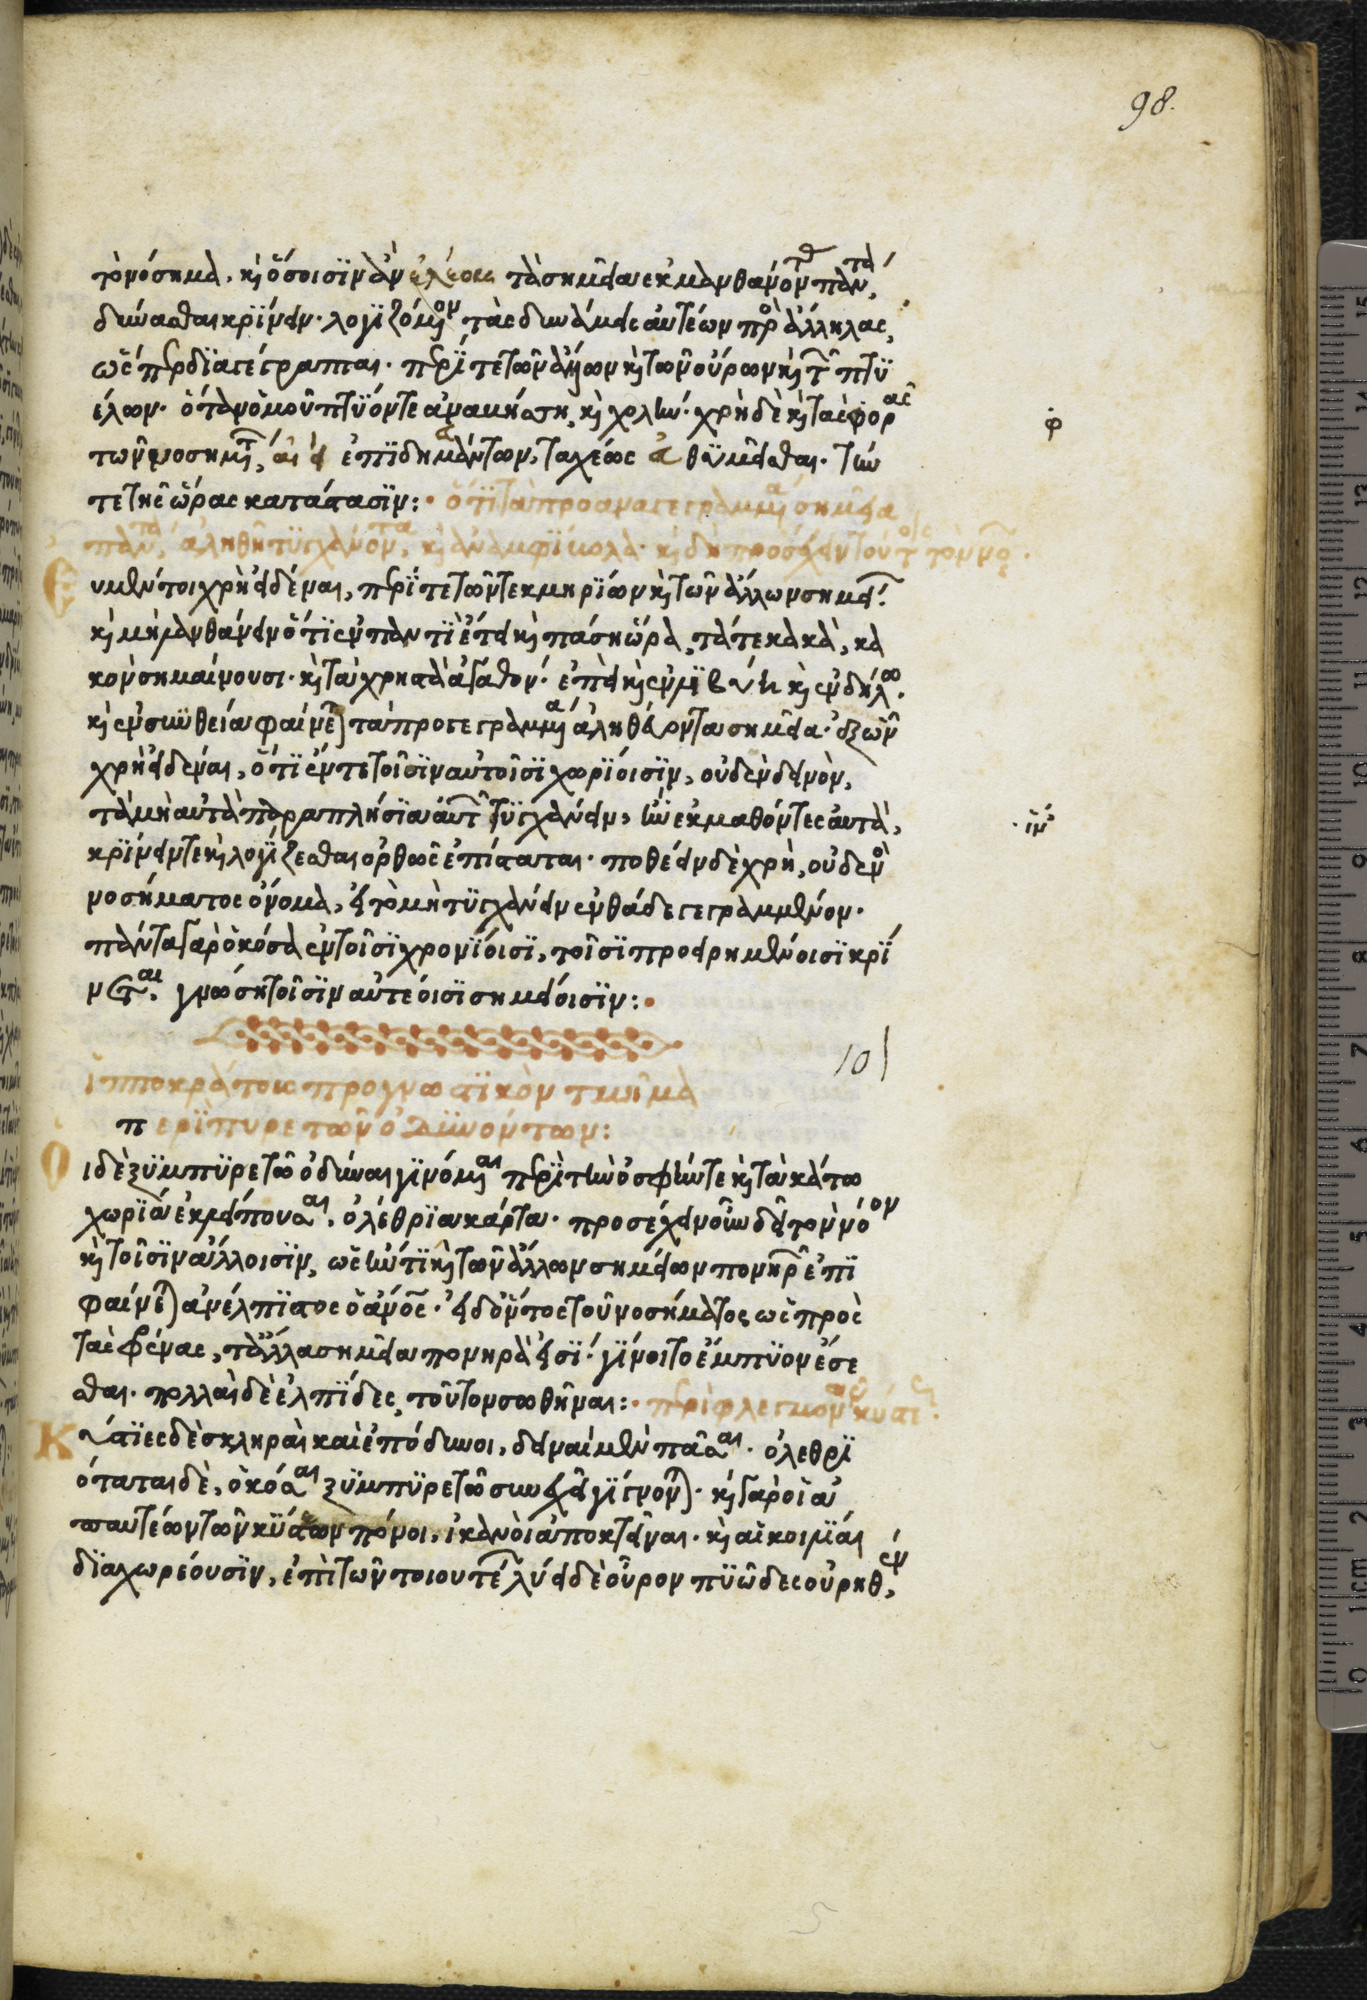 98.
τὸ νόσημα, κὶ ὅσοισϊν ἂν τὰ σημεῖα ἐκμανθάνοντα πάντα,
δύνασθαι κρΐνειν· λογϊζόμενον τὰς δυνάμεις αὐτέων πρὸς ἀλλήλας,
ὥσπερ δϊαγέγραπται· περΐ τε τῶν ἄλλων κὶ τῶν οὔρων κὶ τῶν πτϋ
έλων· ὁτὰν ὁμοῦ πτΰον τε ἀναμήσση, κὶ χολήν· χρὴ δὲ κὶ τὰς φορὰς
τῶν νοσημάτων, ἀεὶ ἐπϊδημεόντων, ταχέως ἐνθϋμεῖσθαι· τήν
τε τῆς ὥρας κατάστασϊν: ὅτϊ τὰ προαναγεγραμμένα σημεῖα
πάντα, ἀληθῆ τϋγχάνοντα, κὶ ἀναμφίβολα· κὶ δεῖ προσέχειν τούτοις τὸν νοῦν.
Ευ μέντοι χρὴ εἰδέναι, περΐ τε τῶν τεκμηρΐων κὶ τῶν ἄλλων σημείων.
κὶ μὴ μανθάνειν ὅτϊ ἐν παντϊ ἔτει κὶ πάση ὥρα, τά τε κακὰ, κα
κὸν σημαίνουσι· κὶ τὰ χρηστὰ ἀγαθόν· ἐπεὶ κὶ ἐν λϊβύη κὶ ἐν δήλω.
κὶ ἐν σκϋθείη φαίνεται τὰ προγεγραμμένα ἀληθέα ὄντα σημεῖα· εὖ ὦν
χρὴ εἰδέναι, ὅτϊ ἐν τοῖσϊν αὐτοῖσϊ χωρΐοισϊν, οὐδὲν δεινὸν,
τὰ μὴ αὐτὰ παραπλήσϊα αὐτῶν τϋγχάνειν, ἢν ἐκμαθόντες αὐτὰ,
κρΐνειν τε κὶ λογΐζεσθαι ὀρθῶς ἐπίσταται· ποθέειν δὲ χρὴ, οὐδενὸς
νοσήματος ὄνομα, εἰ τὸ μὴ τϋγχάνειν ἐνθάδε γεγραμμένον·
πάντα γὰρ ὁκόσα ἐν τοῖσϊ χρονΐοισϊ, τοῖσϊ προειρημένοισϊ κρΐ
νεται. γνώση τοῖσϊν αὐτέοισϊ σημείοισϊν:
101
ἱπποκράτους προγνωστϊκὸν τμῆμα
περῒ πυρετῶν ὀδϋνόντων:
Οἱ δὲ ξΰμπϋρετῶ ὀδύναι γϊνόμεναι περῒ τὴν ὀσφύν τε κὶ τὰ κάτω
χωρΐα ἐκλείπουσαι. ὀλέθρϊαι κάρτα· προσέχειν οὖν δεῖ τὸν νόον
κὶ τοῖσϊν ἄλλοισϊν, ὡς ἢν τϊ κὶ τῶν ἄλλων σημείων πονηρὸν ἐπϊ
φαίνεται ἀνέλπϊστος ὁ ἄνος· εἰ δόντος τοῦ νοσήματος ὡς πρὸς
τὰς φρένας, τὰ ἄλλα σημεῖα πονηρὰ εἰσΐ· γΐνοιτο ἔμπϋον ἔσε
σθαι· πολλαὶ δὲ ἐλπΐδες, τοῦτον σωθῆναι: περὶ φλεγμονῆς κύστεως.
Κύστϊες δὲ σκληραὶ καὶ ἐπόδυνοι, δειναὶ μὲν πᾶσαι. ὀλεθρϊ
όταται δὲ, ὁκόσαι ξΰμπϋρετῶ συνεχεῖ γΐγνονται· κὶ γὰρ οἱ ἀ
π αυτέων τῶν κϋστίων πόνοι, ἱκανοὶ ἀποκτεῖναι· κὶ αἱ κοιλΐαι
δϊαχωρέουσϊν, ἐπὶ τῶν τοιουτέων λύει δὲ οὖρον πϋῶδες οὐρηθέν,